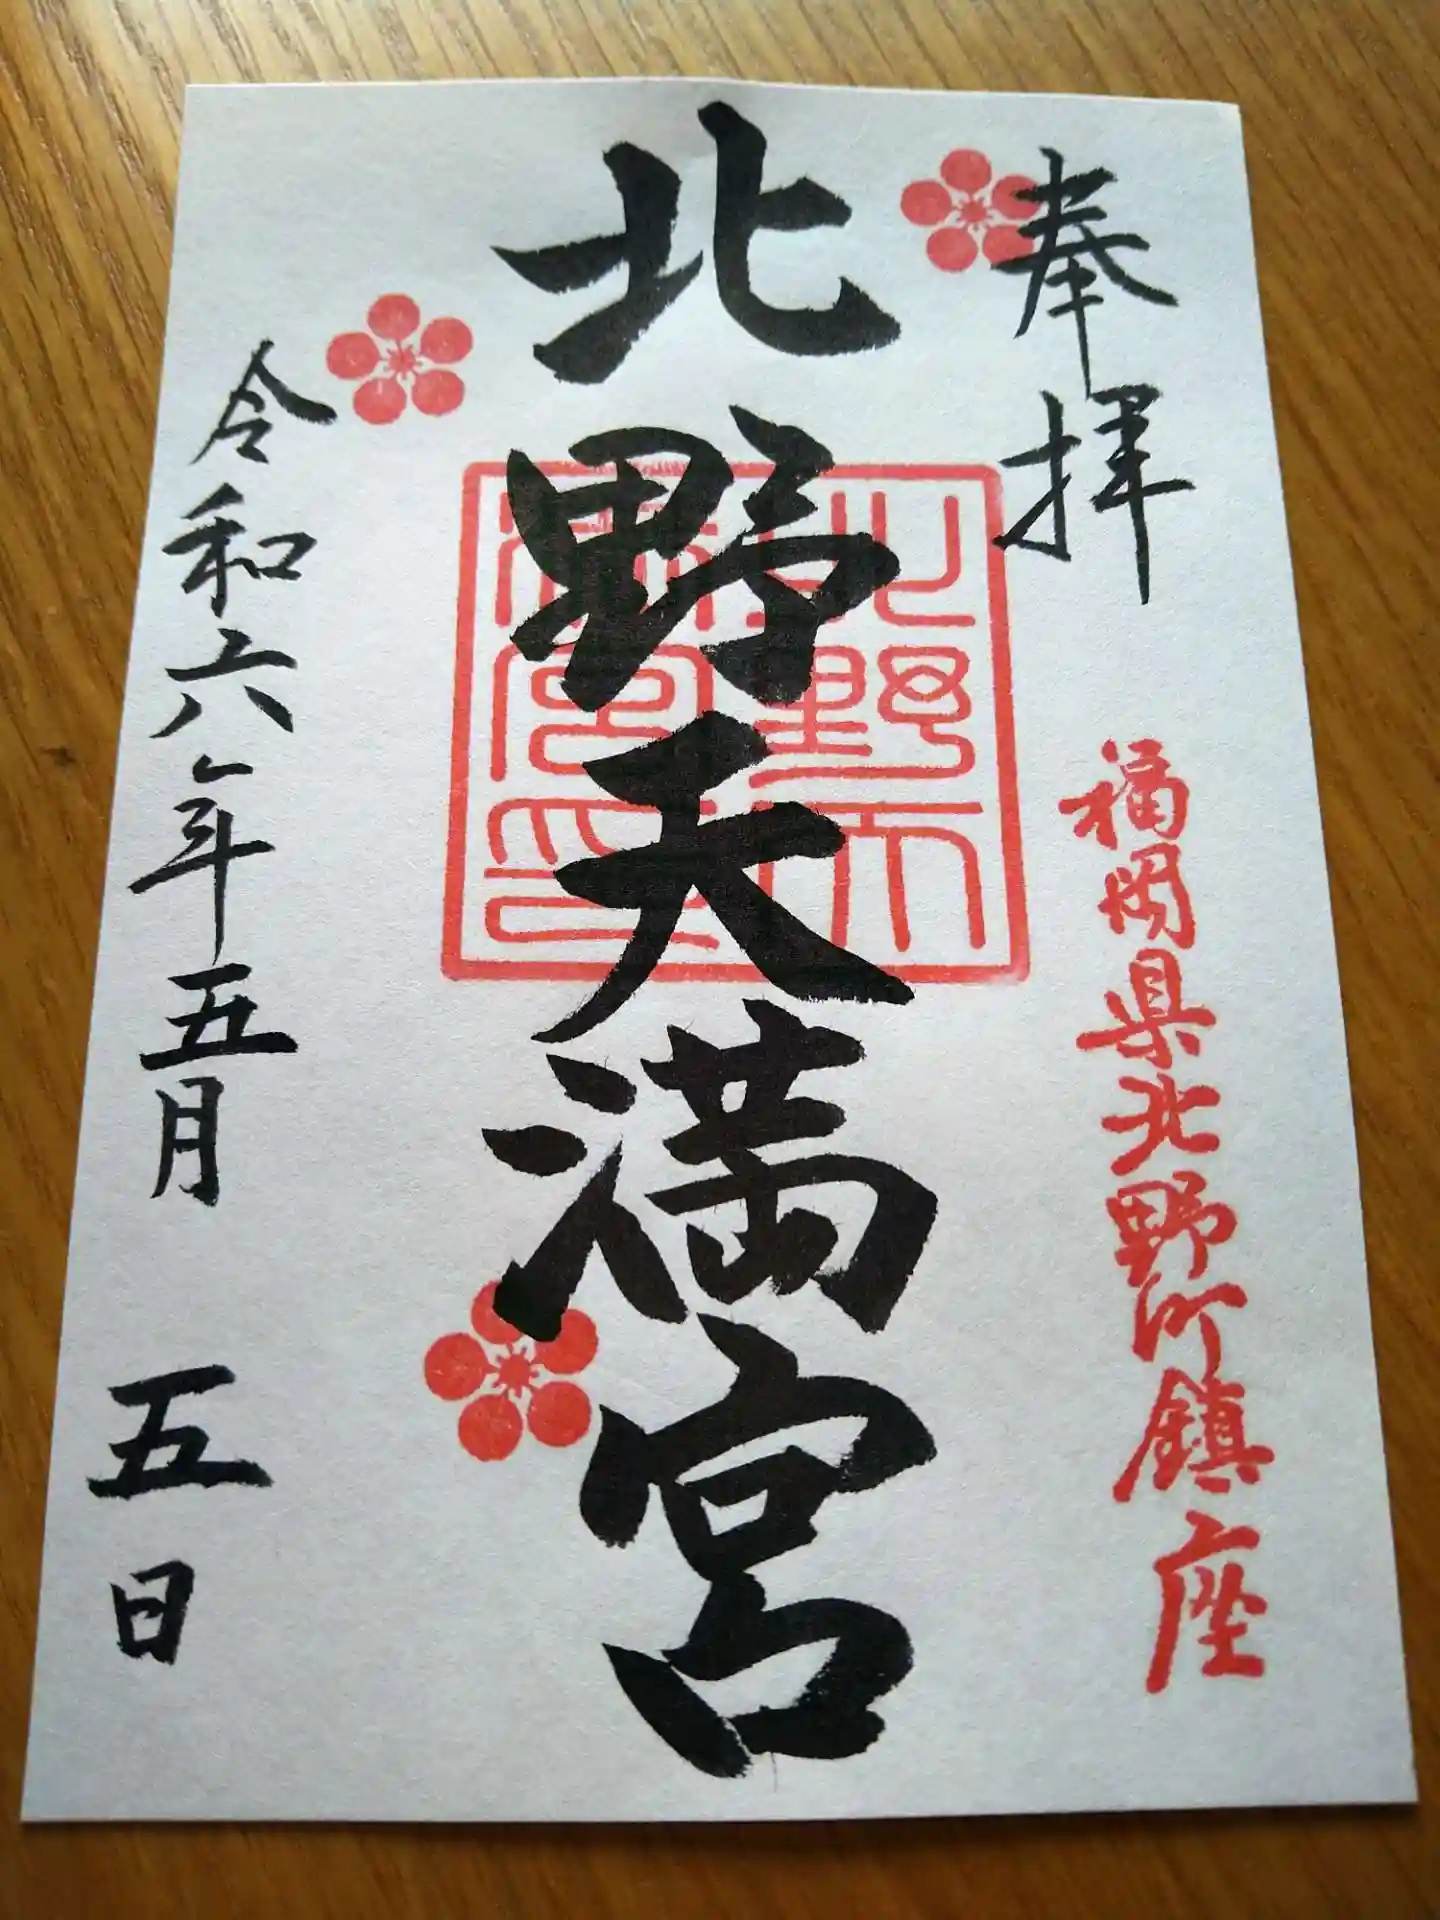 奉拝
福岡県北野町鎮座
北野天満宮
北野天満宮印
令和六年五月五日